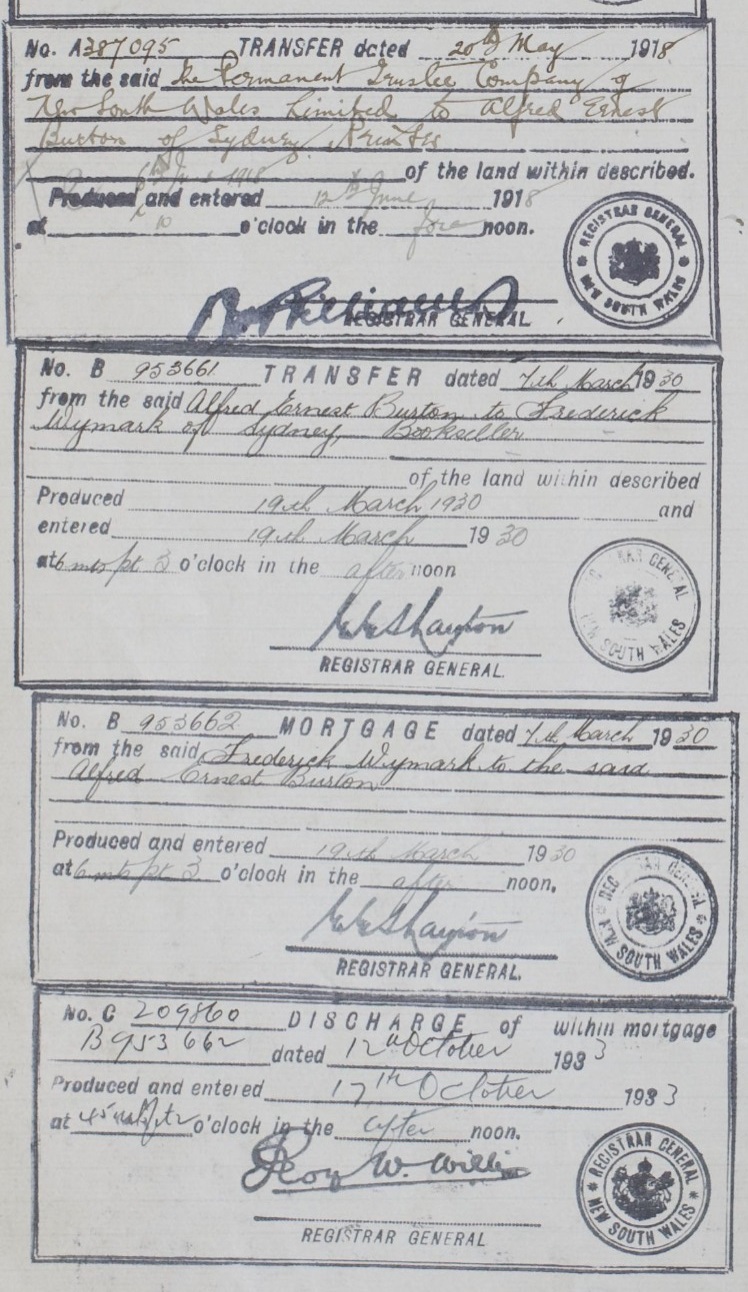 No. A387095 TRANSFER dated 20th May 1918
from the said The Permanent Trustee Company of
New South Wales Limited to Alfred Ernest
Burton of Sydney Printer
of the land within described.
Produced and entered 12th June 1918
at 10 o'clock in the fore noon.
REGISTRAR GENERAL
NEW SOUTH WALES
REGISTRAR GENERAL
No. B 953661 TRANSFER dated 7th March 1930
from the said Alfred Ernest Burton to Frederick
Wymark of Sydney, Bookseller
of the land within described
Produced 19th March 1930 and
entered 19th March 1930
at 6 mts pt 3 o'clock in the after noon
GENERAL
SOUTH WALES
REGISTRAR GENERAL.
No. B 953662 MORTGAGE dated 7th March 1930
from the said Frederick Wymark to the said
Alfred Ernest Burton
Produced and entered 19th March 1930
at 6 mts pt 3 o'clock in the after noon.
GENERAL
SOUTH WALES
REGISTRAR GENERAL.
No. C 209860 DISCHARGE of within mortgage
B953662 dated 12th October 1933
Produced and entered 17th October 1933
at o'clock in the after noon.
REGISTRAR GENERAL
NEW SOUTH WALES
REGISTRAR GENERAL